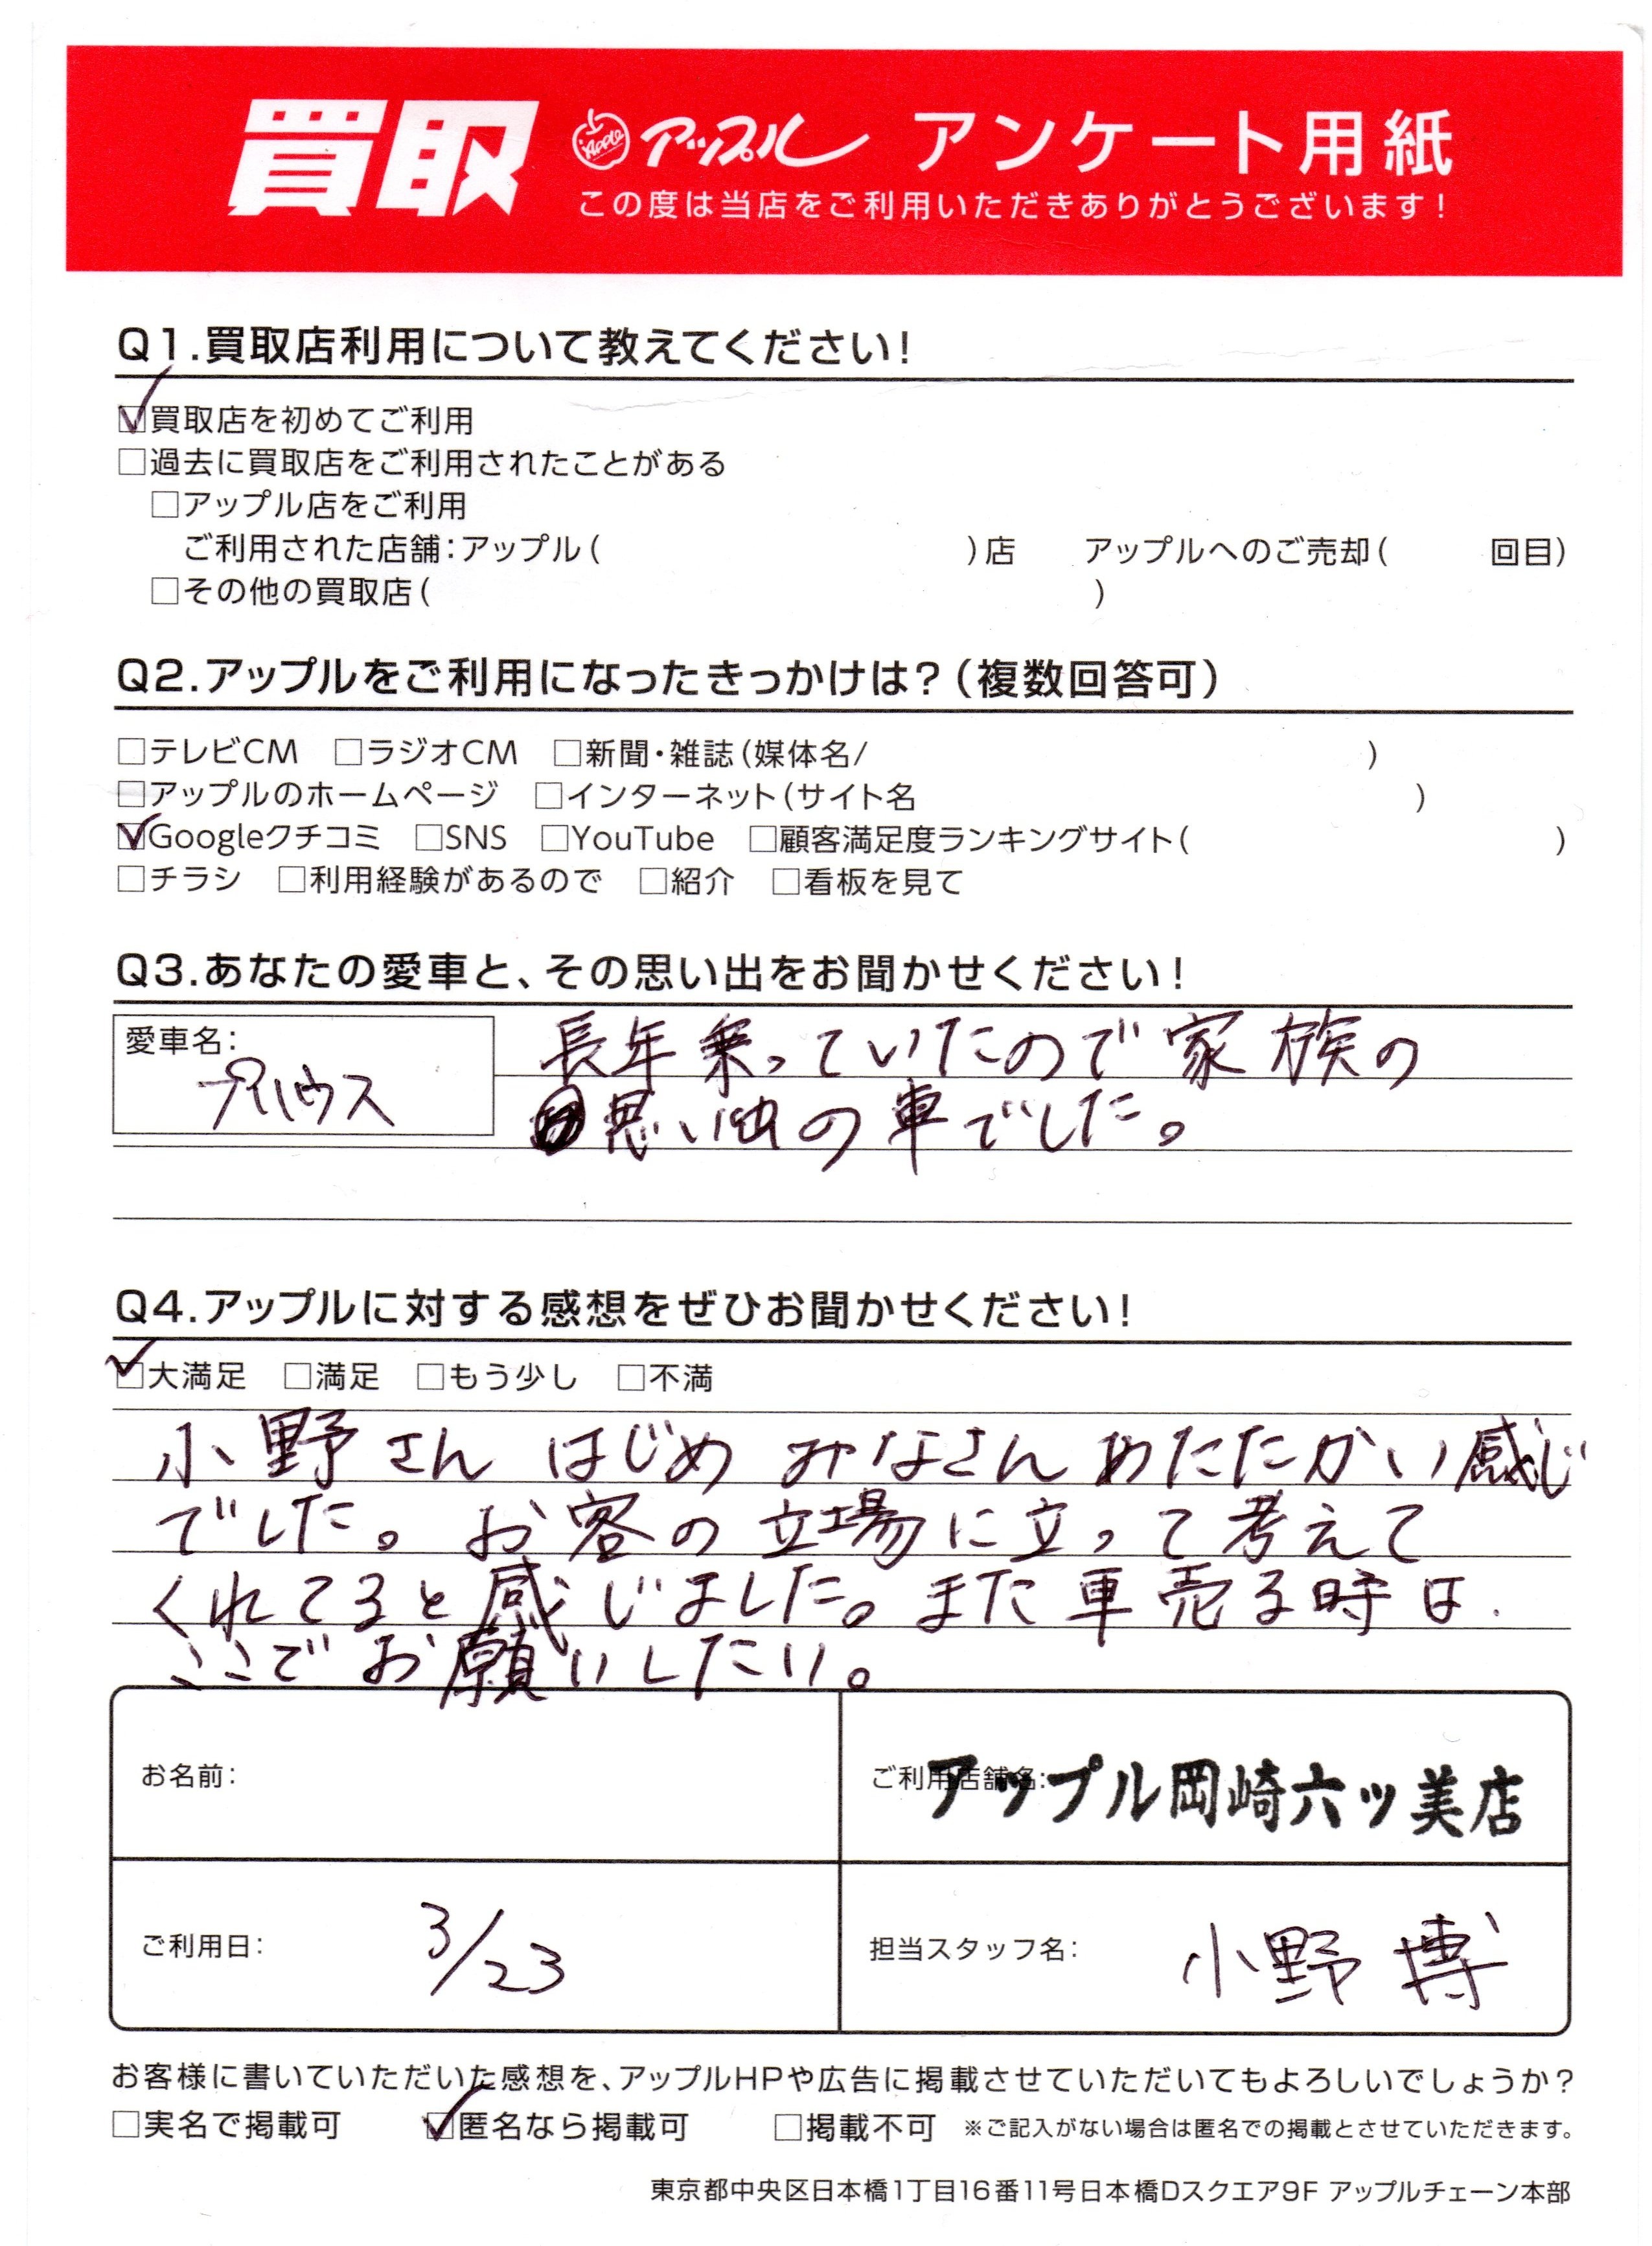 買取 Apple アップル アンケート用紙
この度は当店をご利用いただきありがとうございます！
Q1.買取店利用について教えてください！
☑買取店を初めてご利用
□過去に買取店をご利用されたことがある
□アップル店をご利用
ご利用された店舗：アップル（ ）店 アップルへのご売却（ 回目）
□その他の買取店（ ）
Q2.アップルをご利用になったきっかけは？（複数回答可）
□テレビCM □ラジオCM □新聞・雑誌（媒体名/ ）
□アップルのホームページ □インターネット（サイト名 ）
☑Googleクチコミ □SNS □YouTube □顧客満足度ランキングサイト（ ）
□チラシ □利用経験があるので □紹介 □看板を見て
Q3.あなたの愛車と、その思い出をお聞かせください！
愛車名：
プリウス
長年乗っていたので家族の
思い出の車でした。
Q4.アップルに対する感想をぜひお聞かせください！
☑大満足 □満足 □もう少し □不満
小野さんはじめみなさんあたたかい感じ
でした。お客の立場に立って考えて
くれてると感じました。また車売る時は
ここでお願いしたい。
お名前：
ご利用店舗名：アップル岡崎六ッ美店
ご利用日： 3/23
担当スタッフ名： 小野 博
お客様に書いていただいた感想を、アップルHPや広告に掲載させていただいてもよろしいでしょうか？
□実名で掲載可 ☑匿名なら掲載可 □掲載不可 ※ご記入がない場合は匿名での掲載とさせていただきます。
東京都中央区日本橋1丁目16番11号日本橋Dスクエア9F アップルチェーン本部